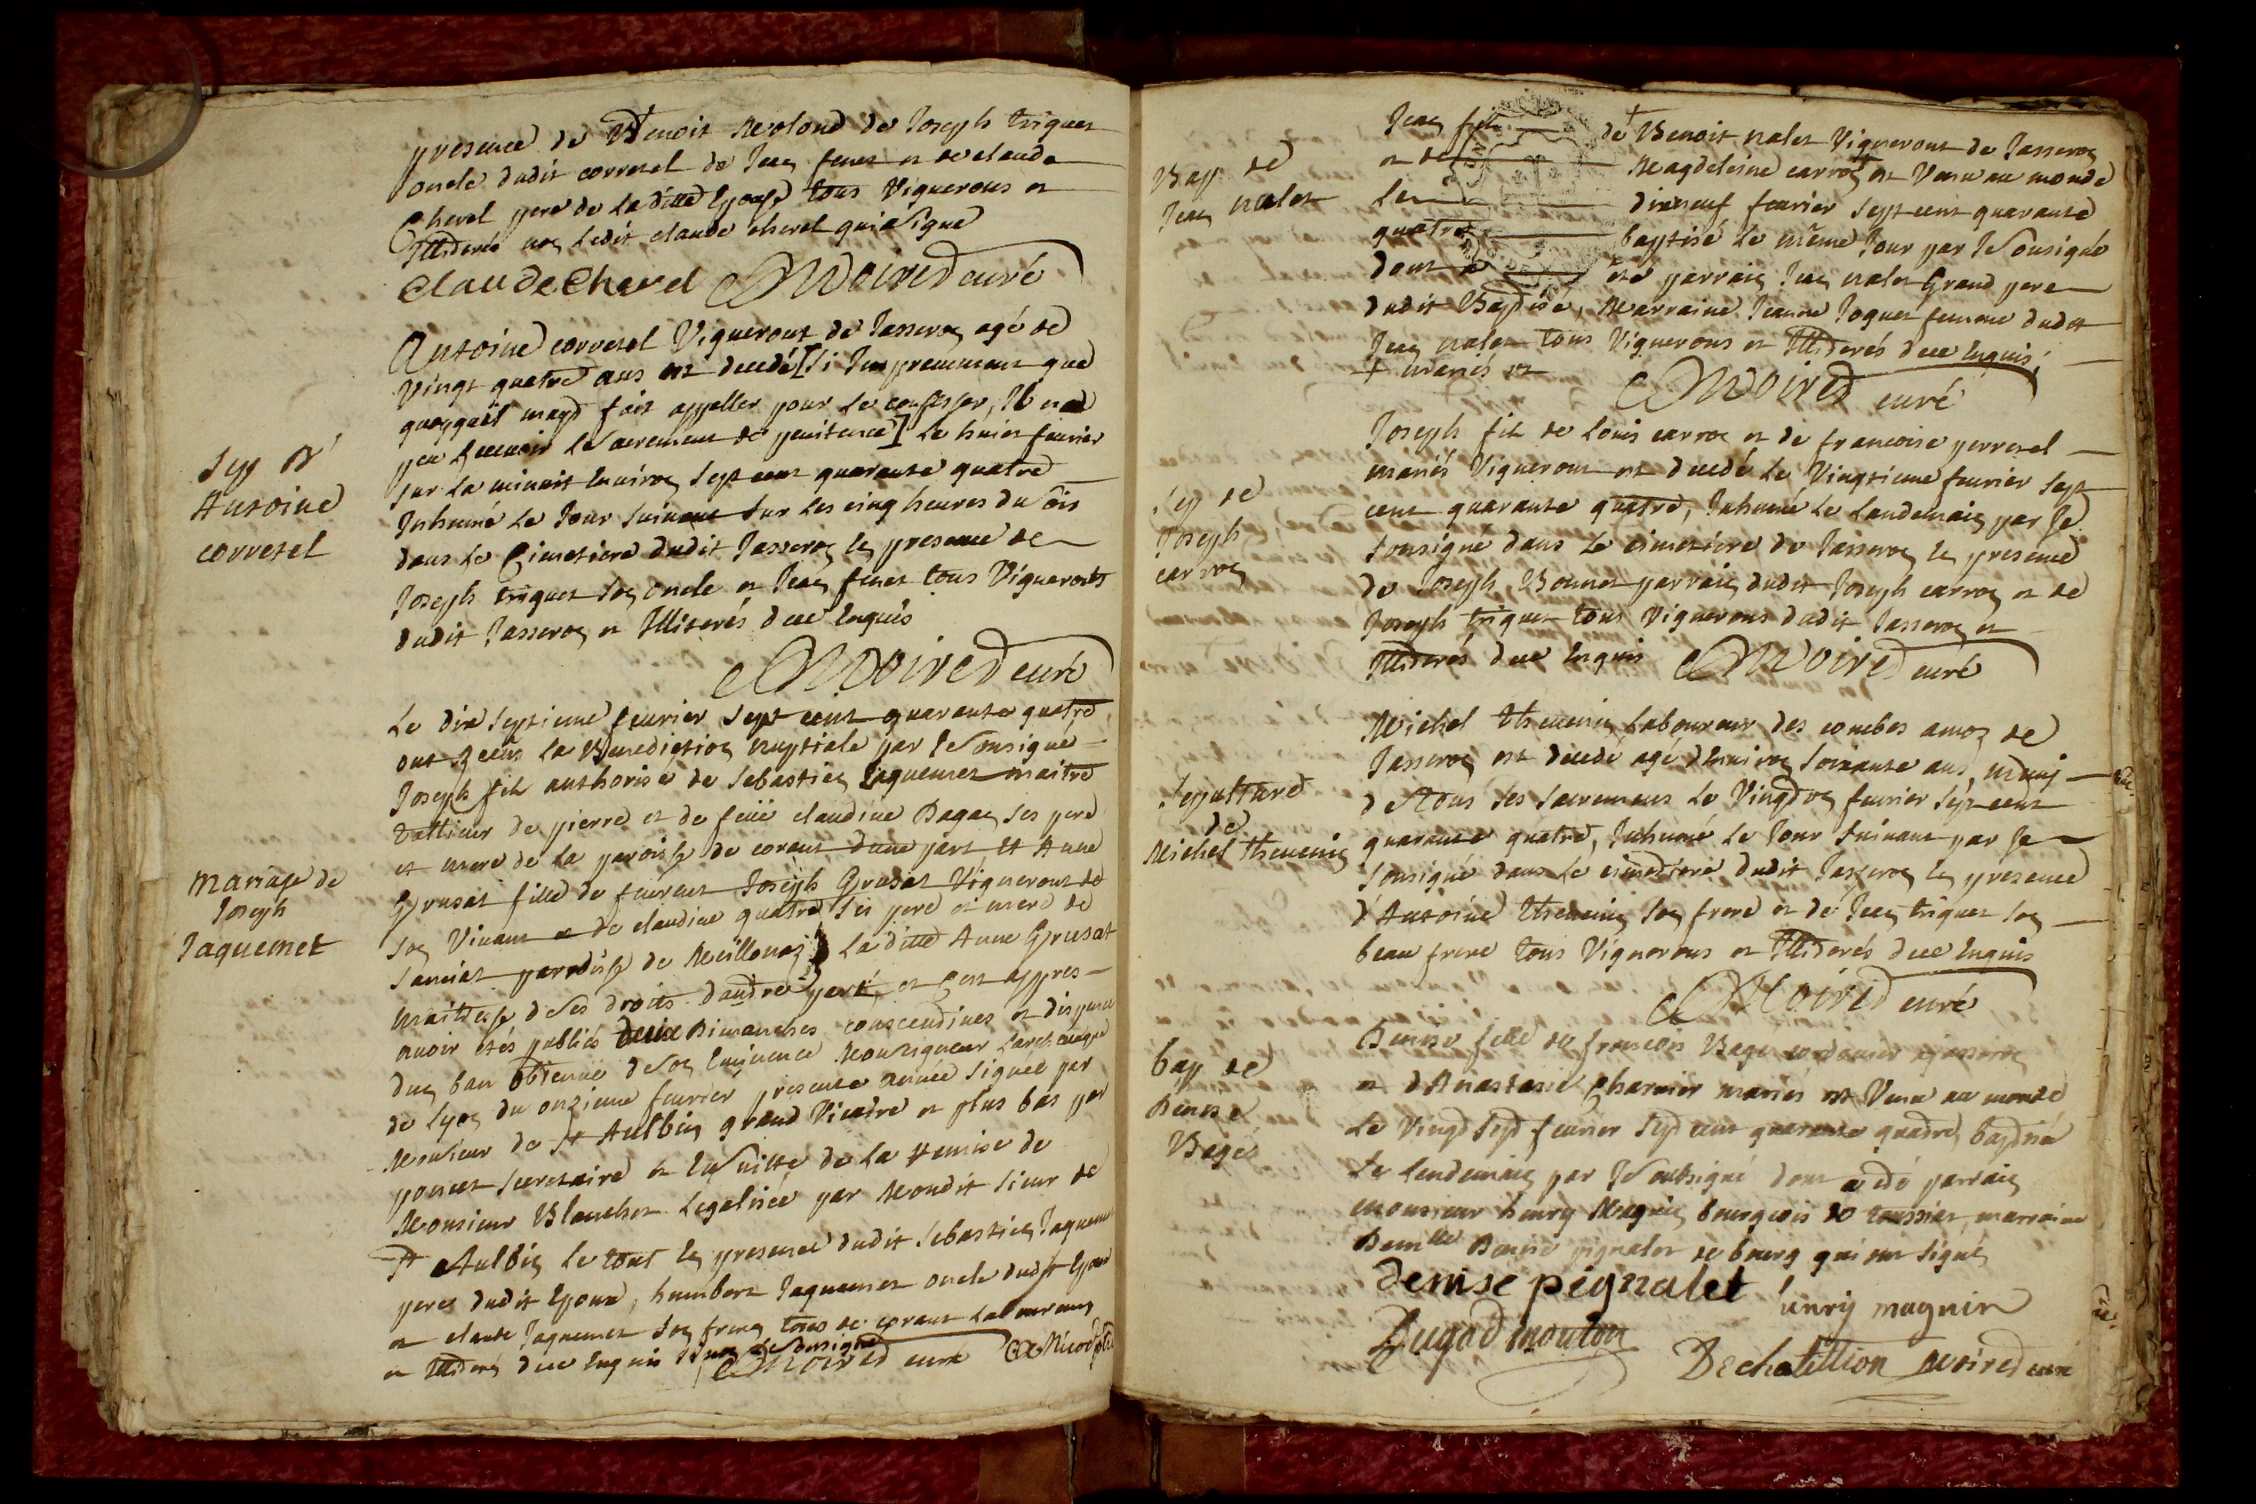 presence de Benoit Molond de Joseph triquet
oncle dudit corretel de Jean feuet et de claude
Chevel pere de la ditte Epouse tous Vignerons et
Illiterés non ledit claude chevel qui a signé
Claude Chevel Moired curé
Sep d'
Antoine
corretel
Antoine corretel Vigneront de Jasseron agé de
vingt quatre ans est decedé [si Impreniument que
quoyquel mayt fait appeller pour le confesser, Il na
peu Recevoir le sacrement de penitence] le huict fevrier
sur la minuit Environ sept cent quarante quatre
Inhumé le Jour suivant sur les cinq heures du soir
dans le Cimetiere dudit Jasseron En presence de
Joseph triquet son oncle et Jean feuet tous Vignerons
dudit Jasseron et Illiterés de ce Enquis
Moired curé
Mariage de
Joseph
Jaquemet
Le dix septieme fevrier sept cent quarante quatre
ont Receus la Benediction nuptiale par Je sousigné
Joseph fils authorisé de sebastien Jaquemet maitre
tallieur de pierre et de feüe claudine Dagan ses pere
et mere de la paroisse de corant d'une part Et Anne
Grusat fille de fut Joseph Grusat Vigneront de
son Vivant et de claudine quatre ses pere et mere de
Sanciat paroisse de Meillonaz La ditte Anne Grusat
maitresse de ses droits d'autre part, et ont appres
avoir etés publiés deux Dimanches consecutives et dispence
dun ban obtenue de son Eminence Monseigneur Larcheveque
de Lyon du onzieme fevrier presente année signée par
Monsieur de St Aulbin grand Vicaire et plus bas par
poncet secretaire et Ensuitte de la Remise de
Monsieur Blanchet Legalisée par Mondit sieur de
St Aulbin le tout En presence dudit sebastien Jaquemet
pere dudit Epoux, humbert Jaquemet oncle dudit Epoux
et claude Jaquemet son frere tous de corant Laboureurs
et Illiterés de ce Enquis non le sousigné
Moired curé
Bap de
Jean nalet
Jean fils de Benoit nalet Vigneront de Jasseron
et de Magdeleine carron est Venu au monde
Le dixneuf fevrier sept cent quarante
quatre baptisé le même Jour par Je sousigné
dont a eté parrain Jean nalet Grand pere
dudit Baptisé, Marraine Jeanne Joquet femme dudit
Jean nalet tous Vignerons et Illiterés de ce Enquis,
† mariés et
Moired curé
Sep de
Joseph
carron
Joseph fils de Louis carron et de francoise perretel
mariés Vigneront est decedé le Vingtieme fevrier sept
cent quarante quatre, Inhumé le Landemain par Je
sousigné dans Le cimetiere de Jasseron En presence
de Joseph Bonnet parrain dudit Joseph carron et de
Joseph triquet tous Vignerons dudit Jasseron et
Illiterés de ce Enquis Moired curé
Sepulture
de
Michel thevenin
Michel thevenin Laboureur des combes amon de
Jasseron est decedé agé d'Environ soixante ans, muni
de tous ses sacremens le Vingdeux fevrier sept cent
quarante quatre, Inhumé le Jour suivant par Je
sousigné dans le cimetiere dudit Jasseron En presence
d'Antoine thevenin son frere et de Jean triquet son
beau frere tous Vignerons et Illiterés de ce Enquis
Moired curé
bap de
Denise
Bagé
Denise fille de francois Bagé cordonnier a Jasseron
et d'Anastasie Charnier mariés est Venue au monde
Le Vingt sept fevrier sept cent quarante quatre baptisée
Le lendemain par Je soubsigné dont a eté parrain
monsieur henry Magnin bourgeois de toussiat, marraine
Demlle Denise pignalet de bourg qui ont signé
denise pignalet
henry magnin
Dugad mouton
Dechatillion Moired curé